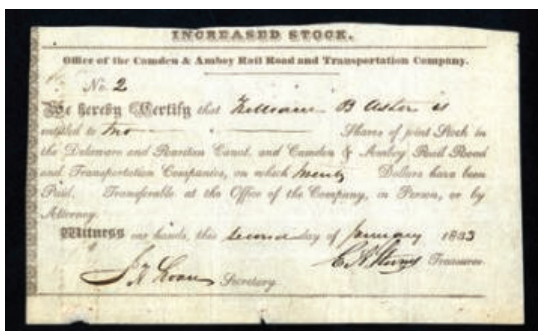 INCREASED STOCK.
Office of the Camden & Amboy Rail Road and Transportation Company.
No. 2
We hereby Certify that William B Astor is
entitled to Two Shares of joint Stock in
the Delaware and Raritan Canal, and Camden & Amboy Rail Road
and Transportation Companies, on which twenty Dollars have been
Paid. Transferable at the Office of the Company, in Person, or by
Attorney.
Witness our hands, this second day of January 1833
Treasurer
Secretary